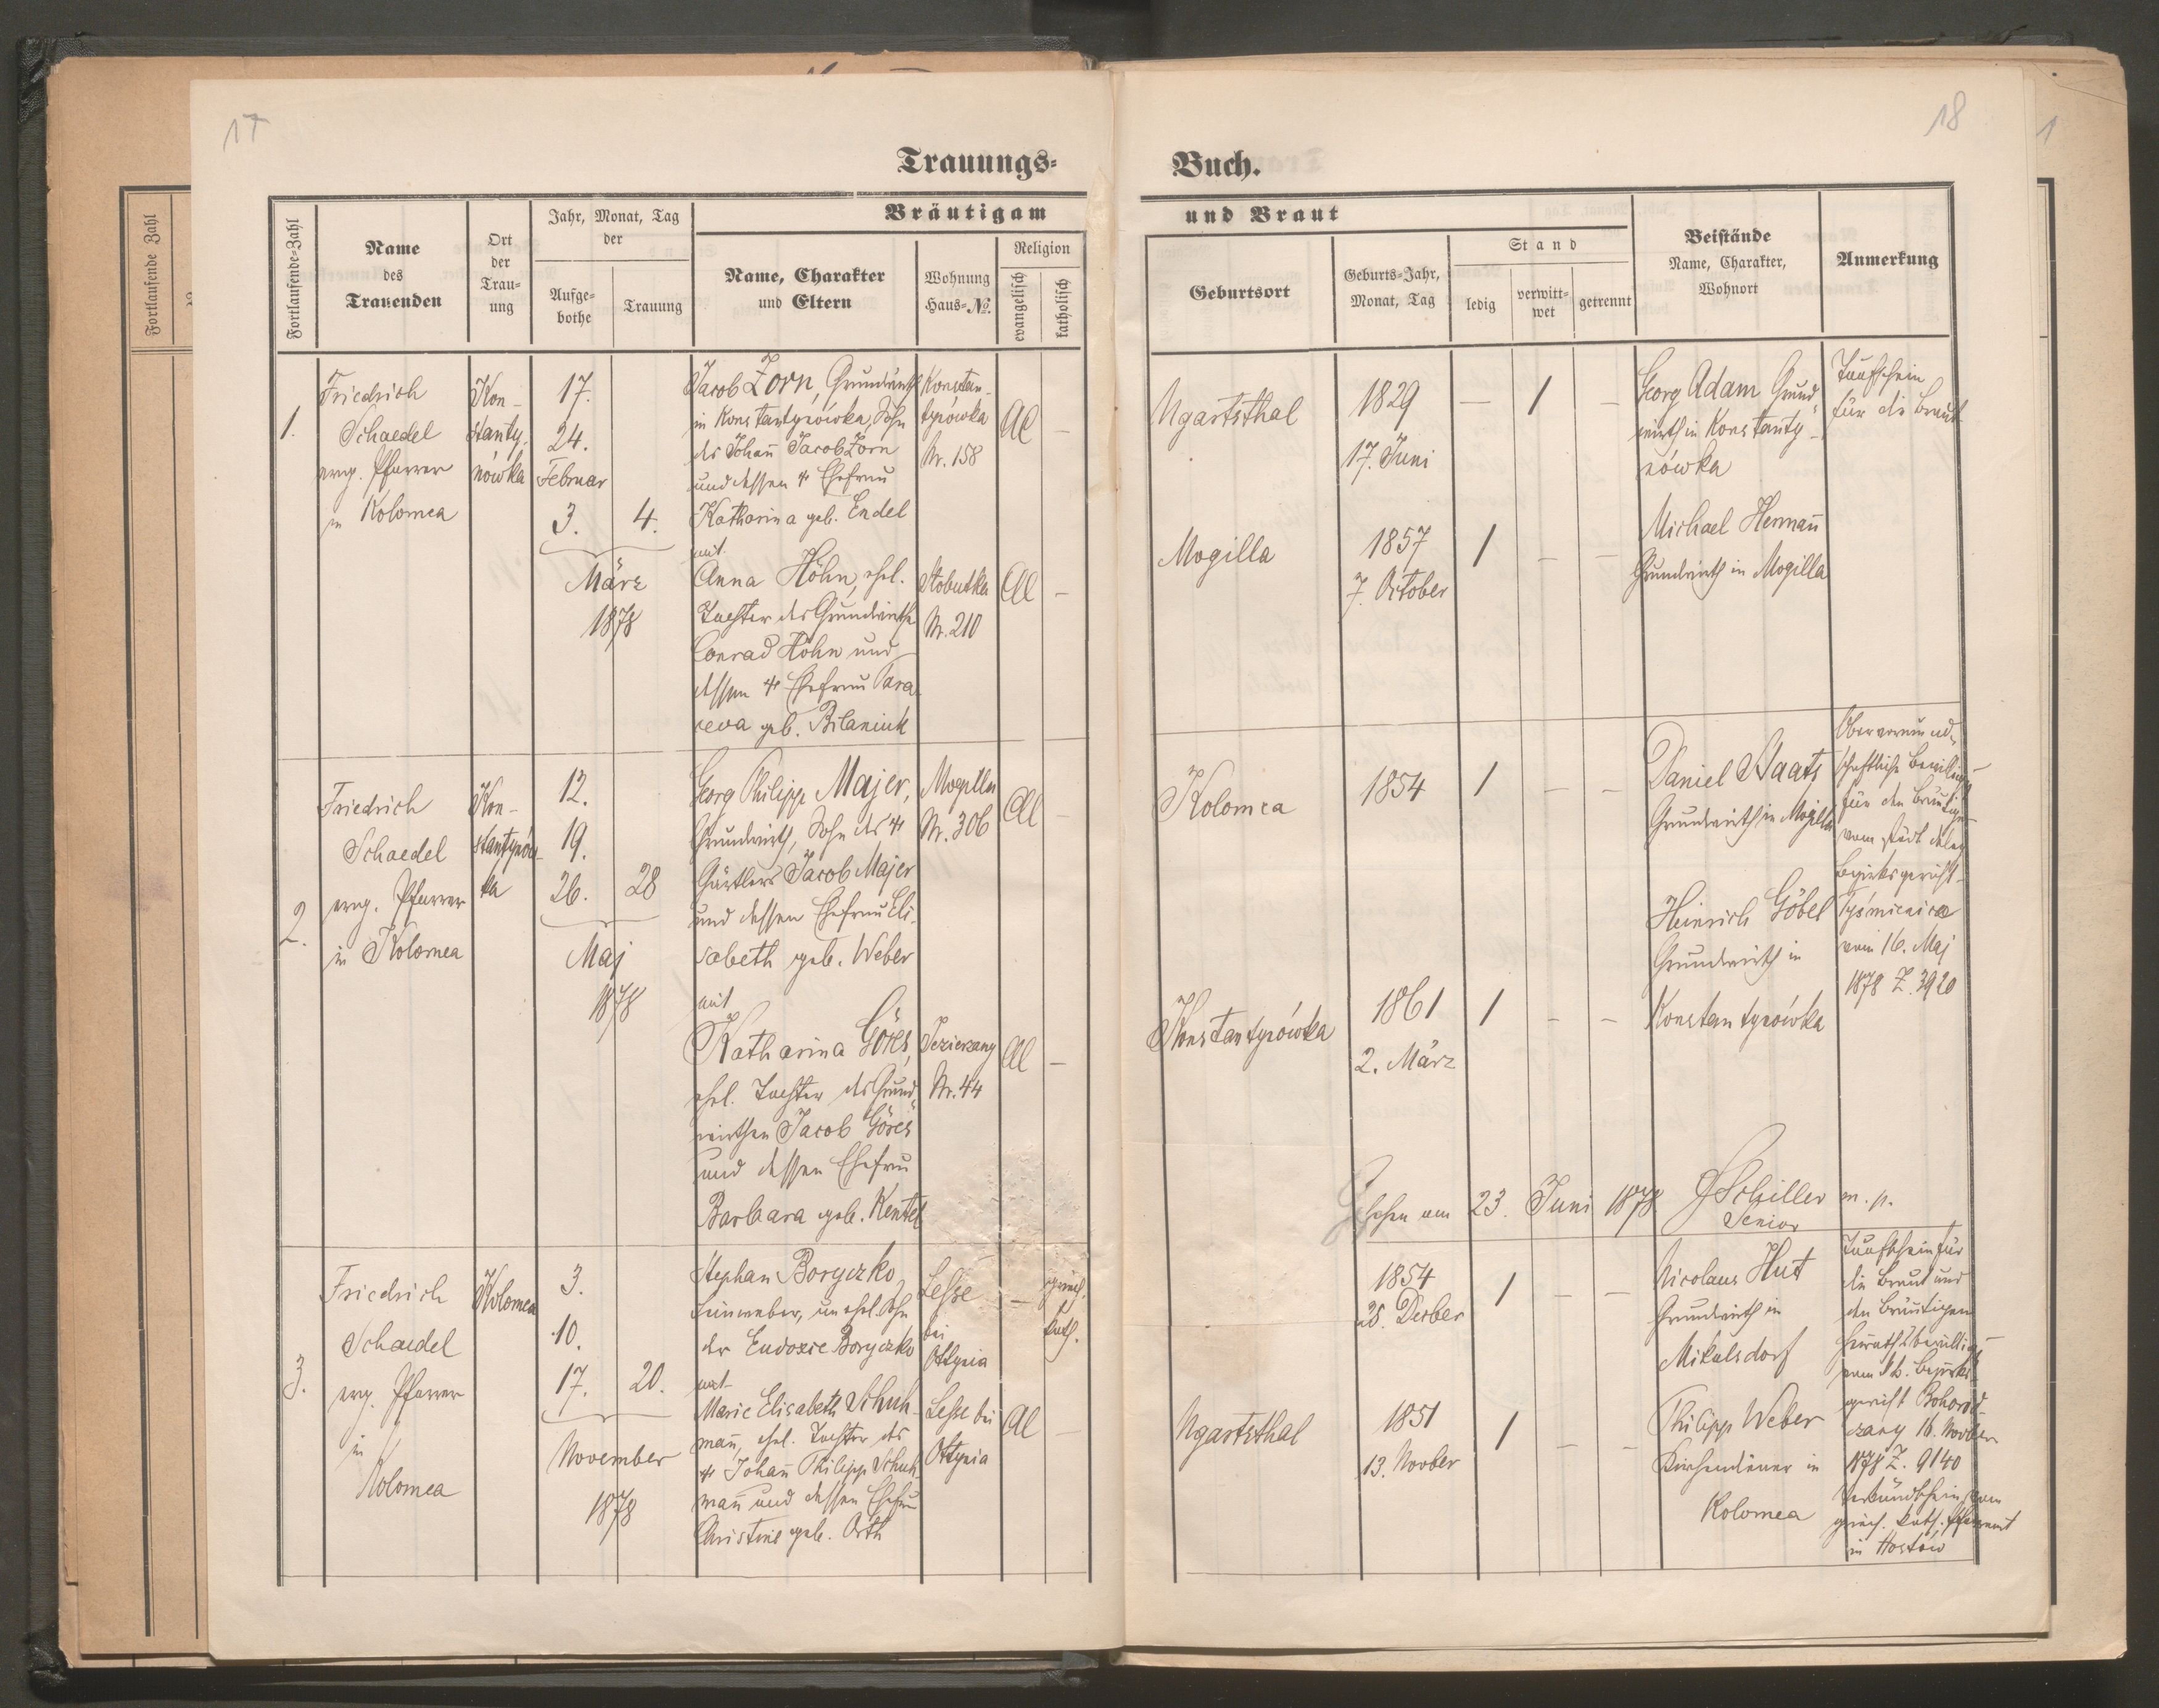 17
18
1
Trauungs-
Buch.
Fortlaufende Zahl
Fortlaufende-Zahl
Name
des
Trauenden
Ort
der
Trau-
ung
Jahr, Monat, Tag
der
Aufge-
bothe
Trauung
Bräutigam
Name, Charakter
und Eltern
Wohnung
Haus-No.
Religion
evangelisch
katholisch
und Braut
Geburtsort
Geburts-Jahr,
Monat, Tag
Stand
ledig
verwitt-
wet
getrennt
Beistände
Name, Charakter,
Wohnort
Anmerkung
1.
Friedrich
Schaedel
evng. Pfarrer
in Kolomea
Kon-
stanty-
nówka
17.
24.
Februar
3. 4.
März
1878
Jacob Zorn, Grundwirth
in Konstantynówka, Sohn
des Johann Jacob Zorn
und dessen Ehefrau
Katharina geb. Endel
mit
Anna Höhn, ehel.
Tochter des Grundwirths
Conrad Höhn und
dessen Ehefrau Para
ceva geb. Bilaniuk
Konstan-
tynówka
Nr. 158
Slobutka
Nr. 210
Ugartsthal
Mogilla
1829
17. Juni
1857
7. October
Georg Adam Grund-
wirth in Konstanty-
nówka
Michael Hermann
Grundwirth in Mogilla
Taufschein
für die Braut
2.
Friedrich
Schaedel
evng. Pfarrer
in Kolomea
Kon-
stantynów-
ka
12.
19.
26. 28
Maj
1878
Georg Philipp Majer,
Grundwirth, Sohn des
Gärtlers Jacob Majer
und dessen Ehefrau Eli-
sabeth geb. Weber
mit
Katharina Göres,
ehel. Tochter des Grund-
wirthen Jacob Göres
und dessen Ehefrau
Barbara geb. Kentel
Mogilla
Nr. 306
Jezierzany
Nr. 44
Kolomea
Konstantynówka
1854
1861
2. März
Daniel Staats
Grundwirth in Mogilla
Heinrich Göbel
Grundwirth in
Konstantynówka
Obervormund-
schaftliche Bewilligung
für den Bräutigam
vom städt. deleg.
Bezirksgericht
Tyśmienica
vom 16. Maj
1878 Z. 3920
Gesehen am 23. Juni 1878 Schiller m. p.
Senior
3.
Friedrich
Schaedel
evg. Pfarrer
in
Kolomea
Kolomea
3.
10.
17. 20.
November
1878
Stephan Boryczko,
Leinweber, unehel. Sohn
der Eudoxie Boryczko
mit
Marie Elisabeth Schuh-
mann, ehel. Tochter des
Johann Philipp Schuh-
mann und dessen Ehefrau
Christine geb. Orth
bei
Ottynia
bei
Ottynia
griech.
kath.
Ugartsthal
1854
28. Decber
1851
13. Novber
Nicolaus Hut
Grundwirth in
Mikulsdorf
Philipp Weber
Kirchendiener in
Kolomea
Taufschein für
die Braut und
den Bräutigam
Heirathsbewilligung
vom Bezirks-
gericht Bohorod-
czany 16. Novber
1878 Z. 9140
Verkündschein vom
griech. kath. Pfarramt
in Hostów